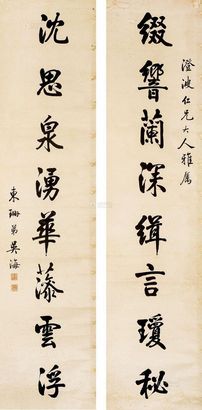 澄波仁兄大人雅属
缀響蘭深緝言瓊秘
沈思泉湧華藻雲浮
東珊弟吳海